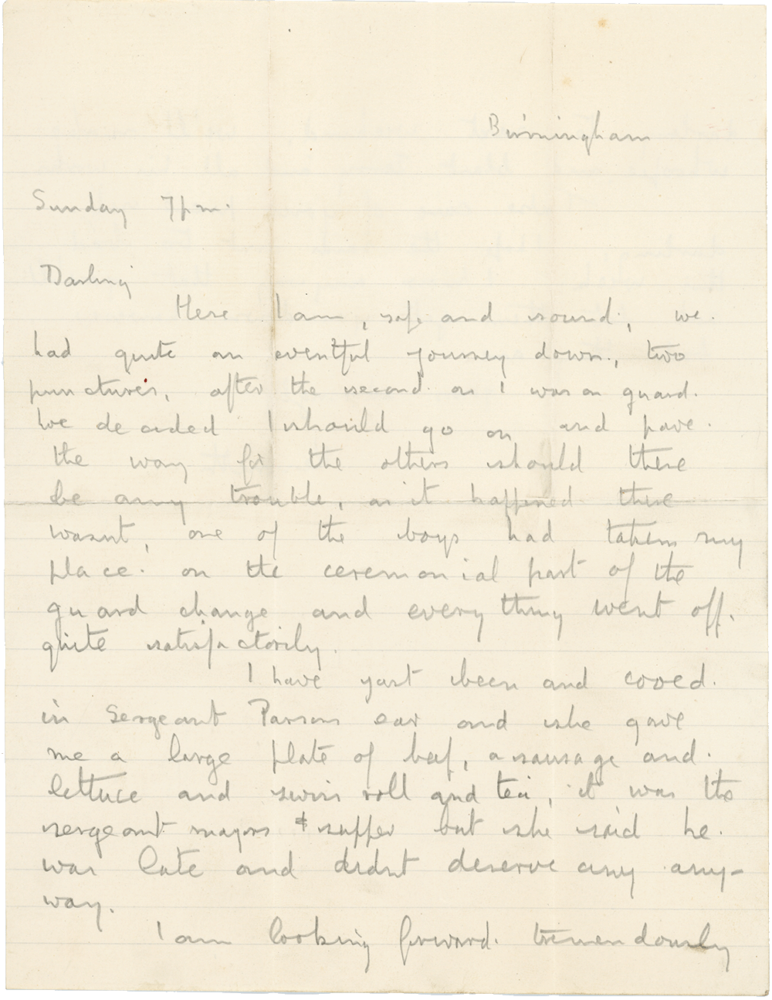 Birmingham
Sunday 7pm.
Darling
Here I am, safe and sound, we
had quite an eventful journey down, two
punctures, after the second as I was on guard
we decided I should go on and pave
the way for the others should there
be any trouble, as it happened there
wasnt, one of the boys had taken my
place on the ceremonial part of the
guard change and everything went off
quite satisfactorily.
I have just been and cooed
in Sergeant Parsons ear and she gave
me a large plate of beef, a sausage and
lettuce and swiss roll and tea, it was the
sergeant majors supper but she said he
was late and didnt deserve any any-
way.
I am looking forward tremendously